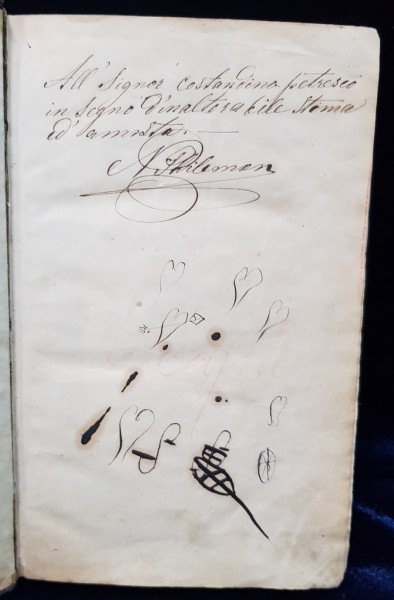 All' Signor costandino petrescò
in segno d'inaltorabile stoma
ed' amista.
N. Philemon